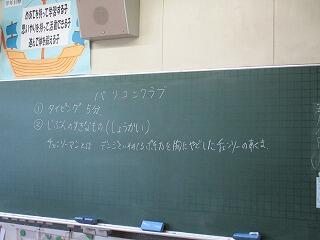 めあてを持って学習する子
思いやりを持って活動できる子
進んで体を鍛える子
パソコンクラブ
① タイピング 5分
② じぶんのすきなもの(しょうかい)
チェンソーマンとは デンジといわれる ポチタを胸にやどしたチェンソーのあくま